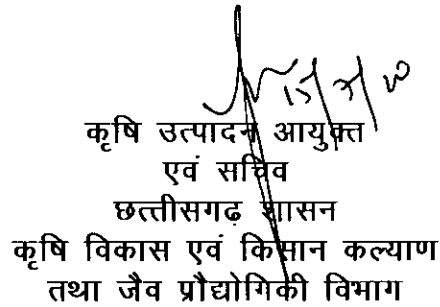 कृषि उत्पादन आयुक्त
एवं सचिव
छत्तीसगढ़ शासन
कृषि विकास एवं किसान कल्याण
तथा जैव प्रौद्योगिकी विभाग